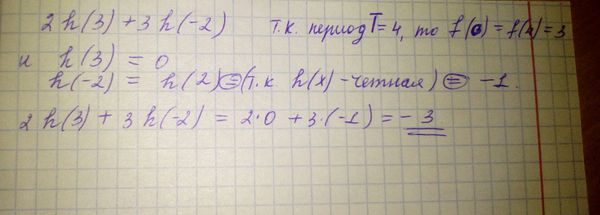 2h(3) + 3h(-2) т.к. период T=4, то f(0) = f(4) = 3
и h(3) = 0
h(-2) = h(2) = (т.к h(x) - четная) = -1.
2h(3) + 3h(-2) = 2·0 + 3·(-1) = -3